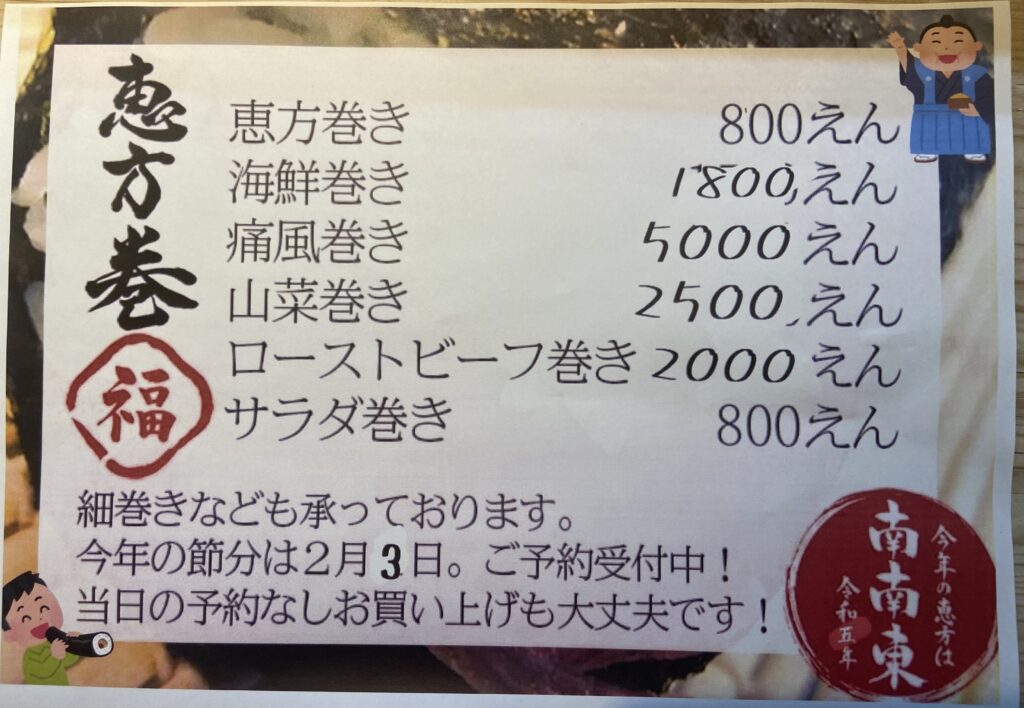 恵方巻
福
恵方巻き 800えん
海鮮巻き 1800えん
痛風巻き 5000えん
山菜巻き 2500えん
ローストビーフ巻き 2000えん
サラダ巻き 800えん
細巻きなども承っております。
今年の節分は2月3日。ご予約受付中！
当日の予約なしお買い上げも大丈夫です！
今年の恵方は
南南東
令和五年